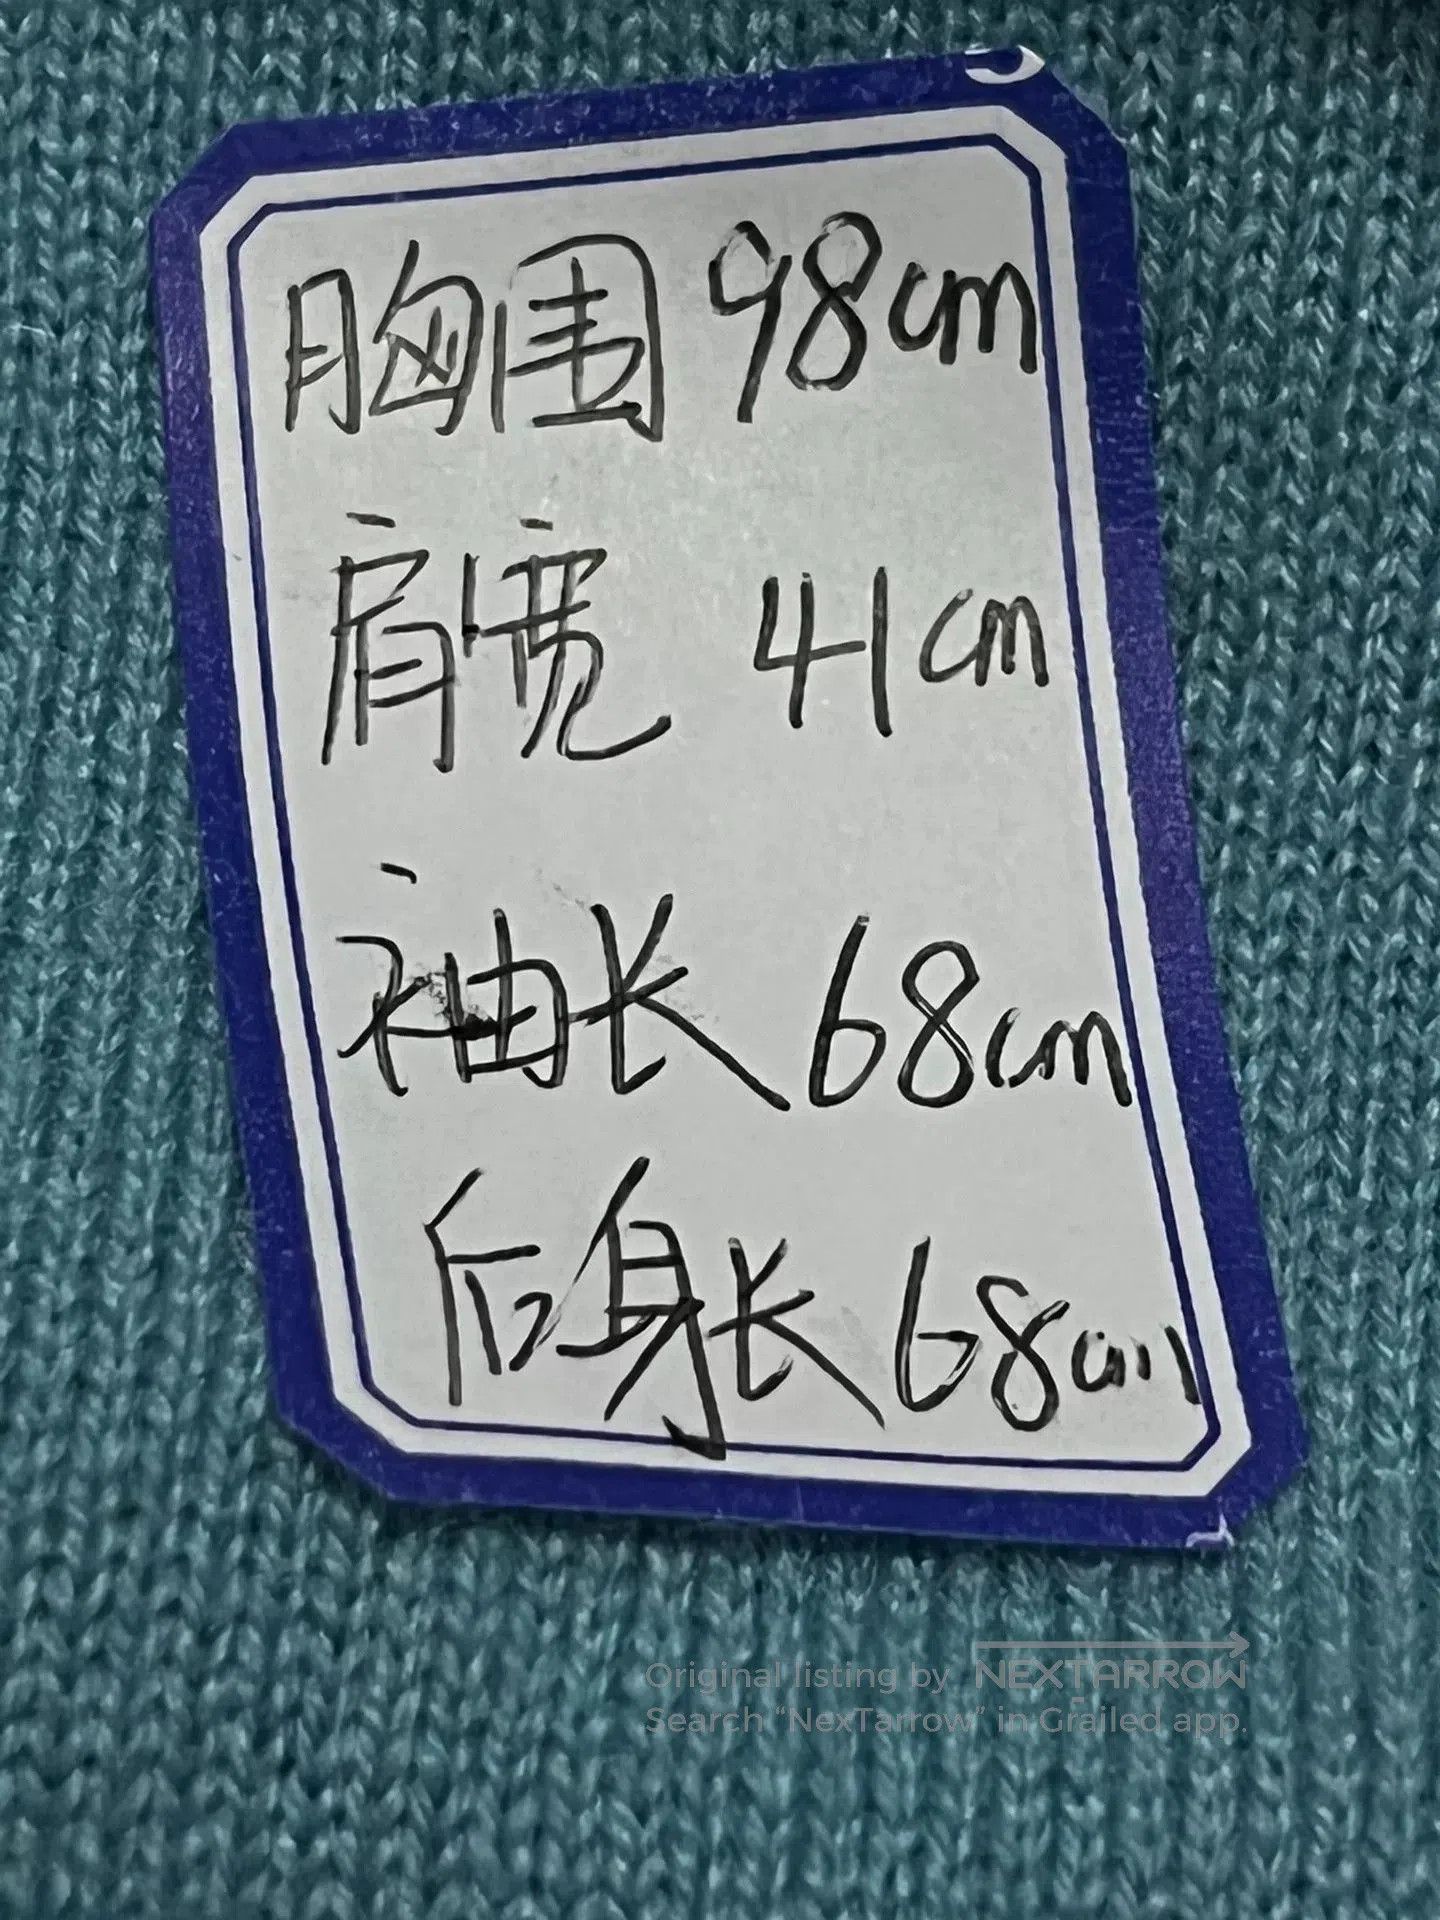 胸围 98cm
肩宽 41cm
袖长 68cm
后身长 68cm
Original listing by NEXTARROW
Search “NexTarrow” in Grailed app.